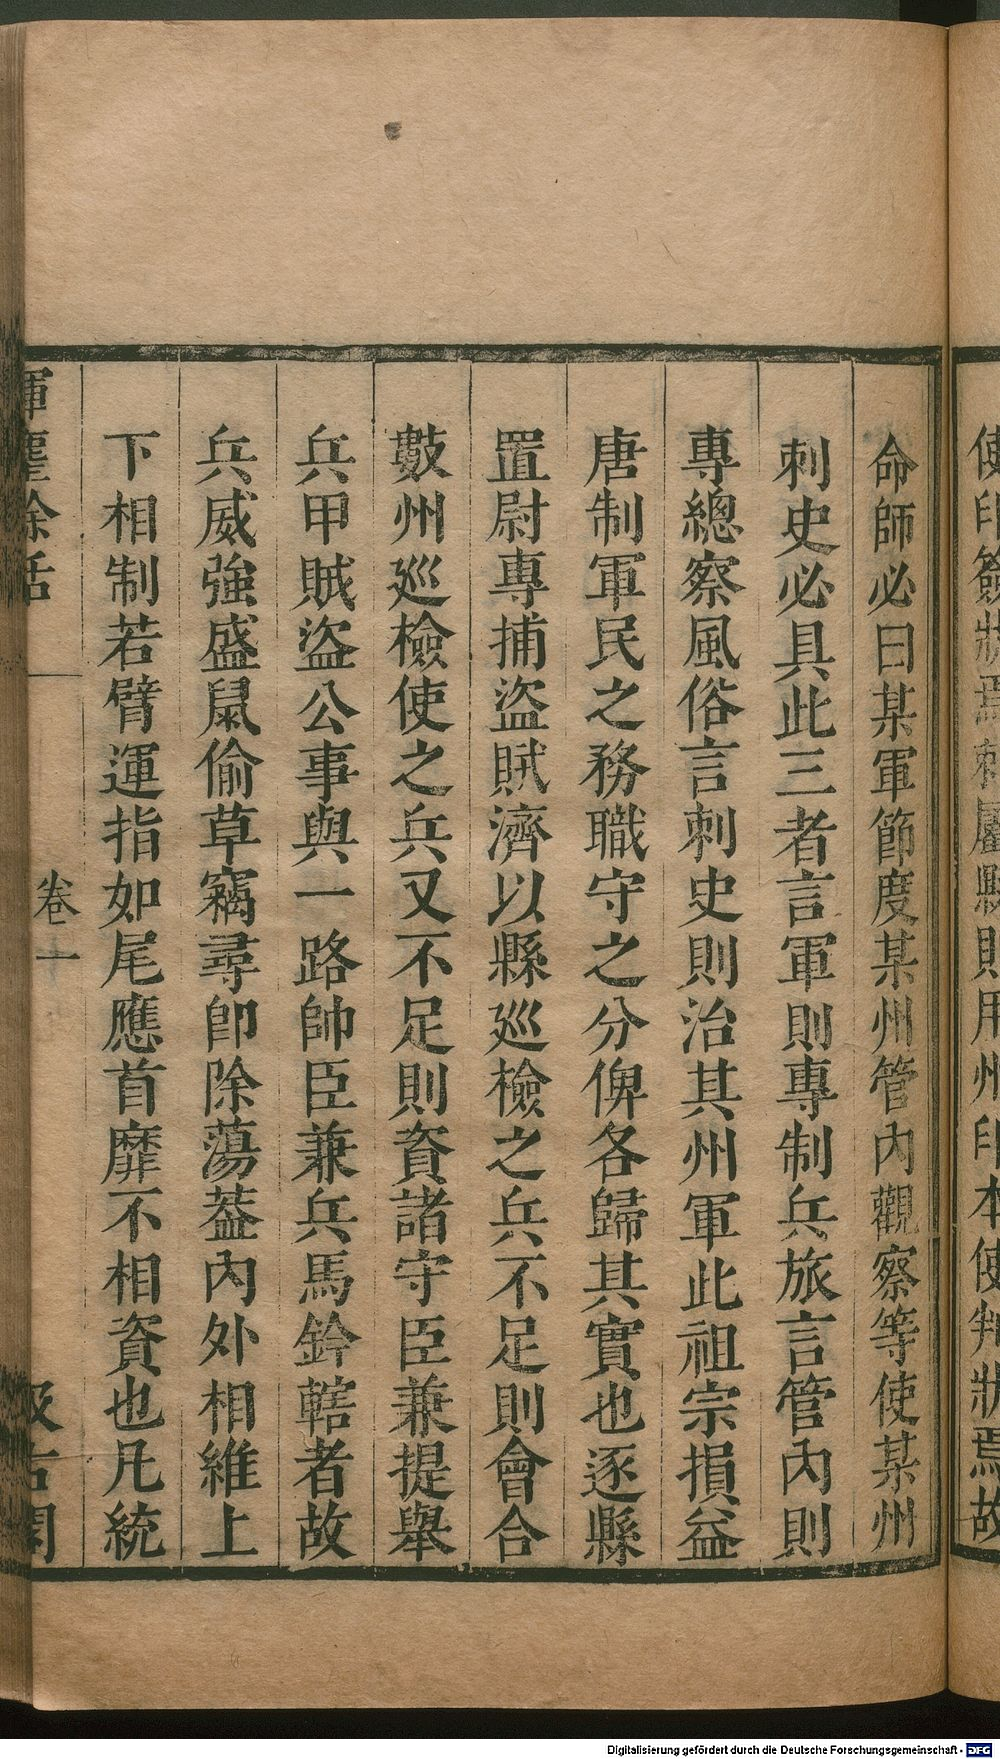 使印簽狀焉刺屬縣則用州印本使判狀焉故
命師必曰某軍節度某州管內觀察等使某州
刺史必具此三者言軍則專制兵旅言管內則
專總察風俗言刺史則治其州軍此祖宗損益
唐制軍民之務職守之分俾各歸其實也逐縣
置尉專捕盜賊濟以縣巡檢之兵不足則會合
數州巡檢使之兵又不足則資諸守臣兼提舉
兵甲賊盜公事與一路帥臣兼兵馬鈐轄者故
兵威強盛鼠偷草竊尋卽除蕩蓋內外相維上
下相制若臂運指如尾應首靡不相資也凡統
揮麈餘話 卷一 汲古閣
Digitalisierung gefördert durch die Deutsche Forschungsgemeinschaft - DFG